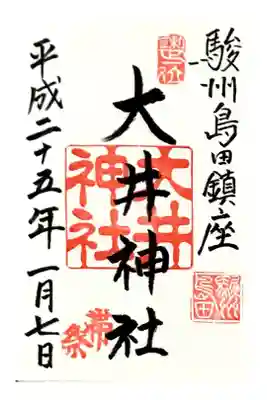 駿州島田鎮座
大井神社
大井
神社
帯祭
平成二十五年一月七日